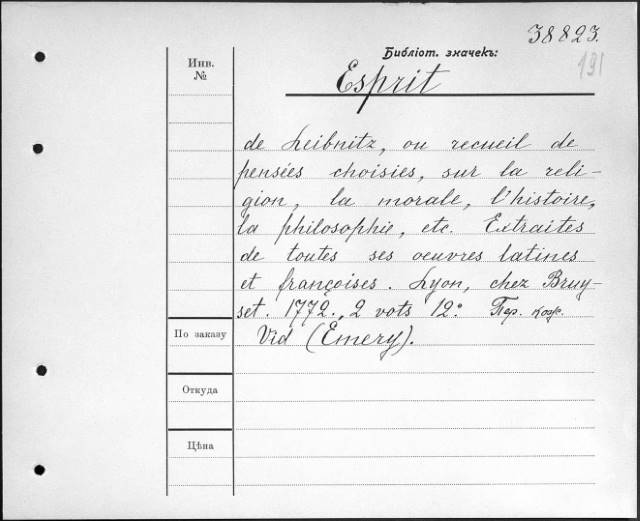 38823.
191
Библіот. значекъ:
Инв.
№
Esprit
de Leibnitz, ou recueil de
pensées choisies, sur la reli-
gion, la morale, l'histoire,
la philosophie, etc. Extraites
de toutes ses oeuvres latines
et françoises. Lyon, chez Bruy-
set. 1772., 2 vols 12°. Пер. кож.
Vid (Emery).
По заказу
Откуда
Цѣна